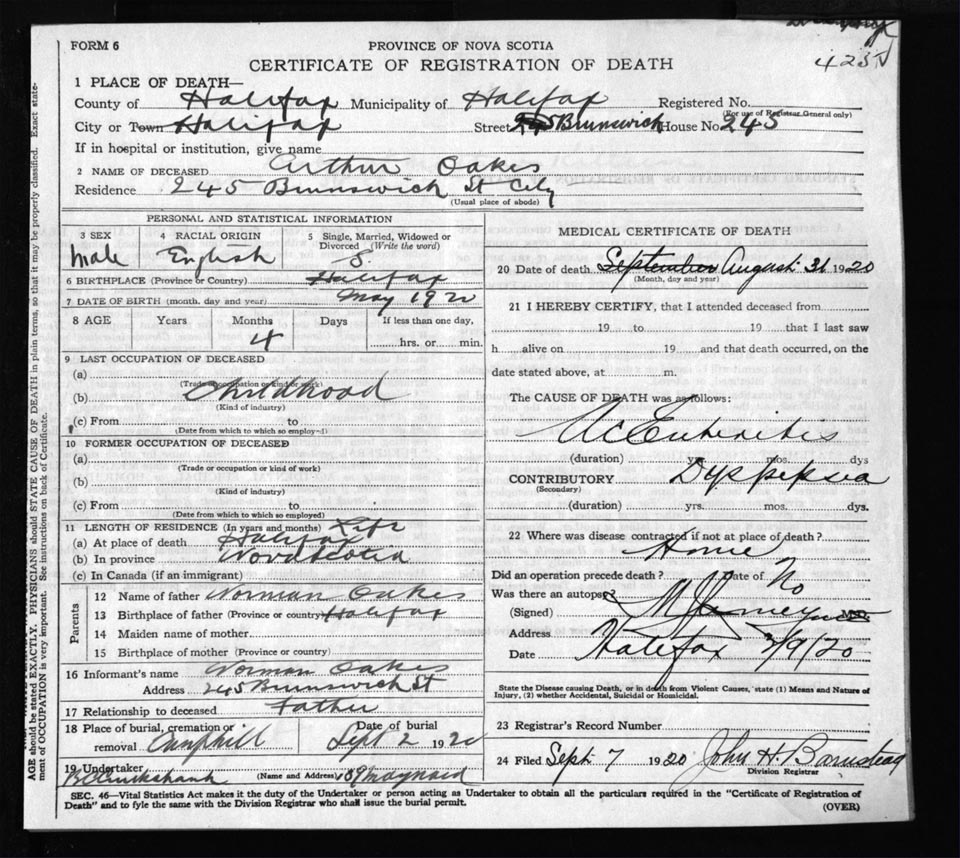 423
FORM 6
PROVINCE OF NOVA SCOTIA
CERTIFICATE OF REGISTRATION OF DEATH
1 PLACE OF DEATH—
County of Halifax Municipality of Halifax Registered No.
(For use of Registrar General only)
City or Town Halifax Street 245 Brunswick House No. 245
If in hospital or institution, give name
2 NAME OF DECEASED Arthur Oakes
Residence 245 Brunswick St City
(Usual place of abode)
PERSONAL AND STATISTICAL INFORMATION
3 SEX 4 RACIAL ORIGIN 5 Single, Married, Widowed or Divorced (Write the word)
Male English S.
6 BIRTHPLACE (Province or Country) Halifax
7 DATE OF BIRTH (month, day and year) May 1920
8 AGE Years Months Days If less than one day,
4 hrs. or min.
9 LAST OCCUPATION OF DECEASED
(a)
(Trade or occupation or kind of work)
(b) Childhood
(Kind of industry)
(c) From to
(Date from which to which so employed)
10 FORMER OCCUPATION OF DECEASED
(a)
(Trade or occupation or kind of work)
(b)
(Kind of industry)
(c) From to
(Date from which to which so employed)
11 LENGTH OF RESIDENCE (In years and months) Life
(a) At place of death Halifax
(b) In province Nova Scotia
(c) In Canada (if an immigrant)
Parents
12 Name of father Norman Oakes
13 Birthplace of father (Province or country) Halifax
14 Maiden name of mother
15 Birthplace of mother (Province or country)
16 Informant's name Norman Oakes
Address 245 Brunswick St
17 Relationship to deceased Father
18 Place of burial, cremation or removal Camphill Date of burial Sept 2 1920
19 Undertaker (Name and Address) 189 Maynard
MEDICAL CERTIFICATE OF DEATH
20 Date of death September August 31 1920
(Month, day and year)
21 I HEREBY CERTIFY, that I attended deceased from
19 to 19 that I last saw
h alive on 19 and that death occurred, on the
date stated above, at m.
The CAUSE OF DEATH was as follows:
(duration) yrs. mos. dys
CONTRIBUTORY Dyspepsia
(Secondary)
(duration) yrs. mos. dys.
22 Where was disease contracted if not at place of death?
Home
Did an operation precede death? Date of No
Was there an autopsy?
(Signed) M.D.
Address Halifax
Date 2/9/20
State the Disease causing Death, or in death from Violent Causes, state (1) Means and Nature of
Injury, (2) whether Accidental, Suicidal or Homicidal.
23 Registrar's Record Number
24 Filed Sept 7 1920 John H. Barnstead
Division Registrar
SEC. 46—Vital Statistics Act makes it the duty of the Undertaker or person acting as Undertaker to obtain all the particulars required in the "Certificate of Registration of
Death" and to fyle the same with the Division Registrar who shall issue the burial permit.
(OVER)
AGE should be stated EXACTLY. PHYSICIANS should STATE CAUSE OF DEATH in plain terms, so that it may be properly classified. Exact state-
ment of OCCUPATION is very important. See instructions on back of Certificate.